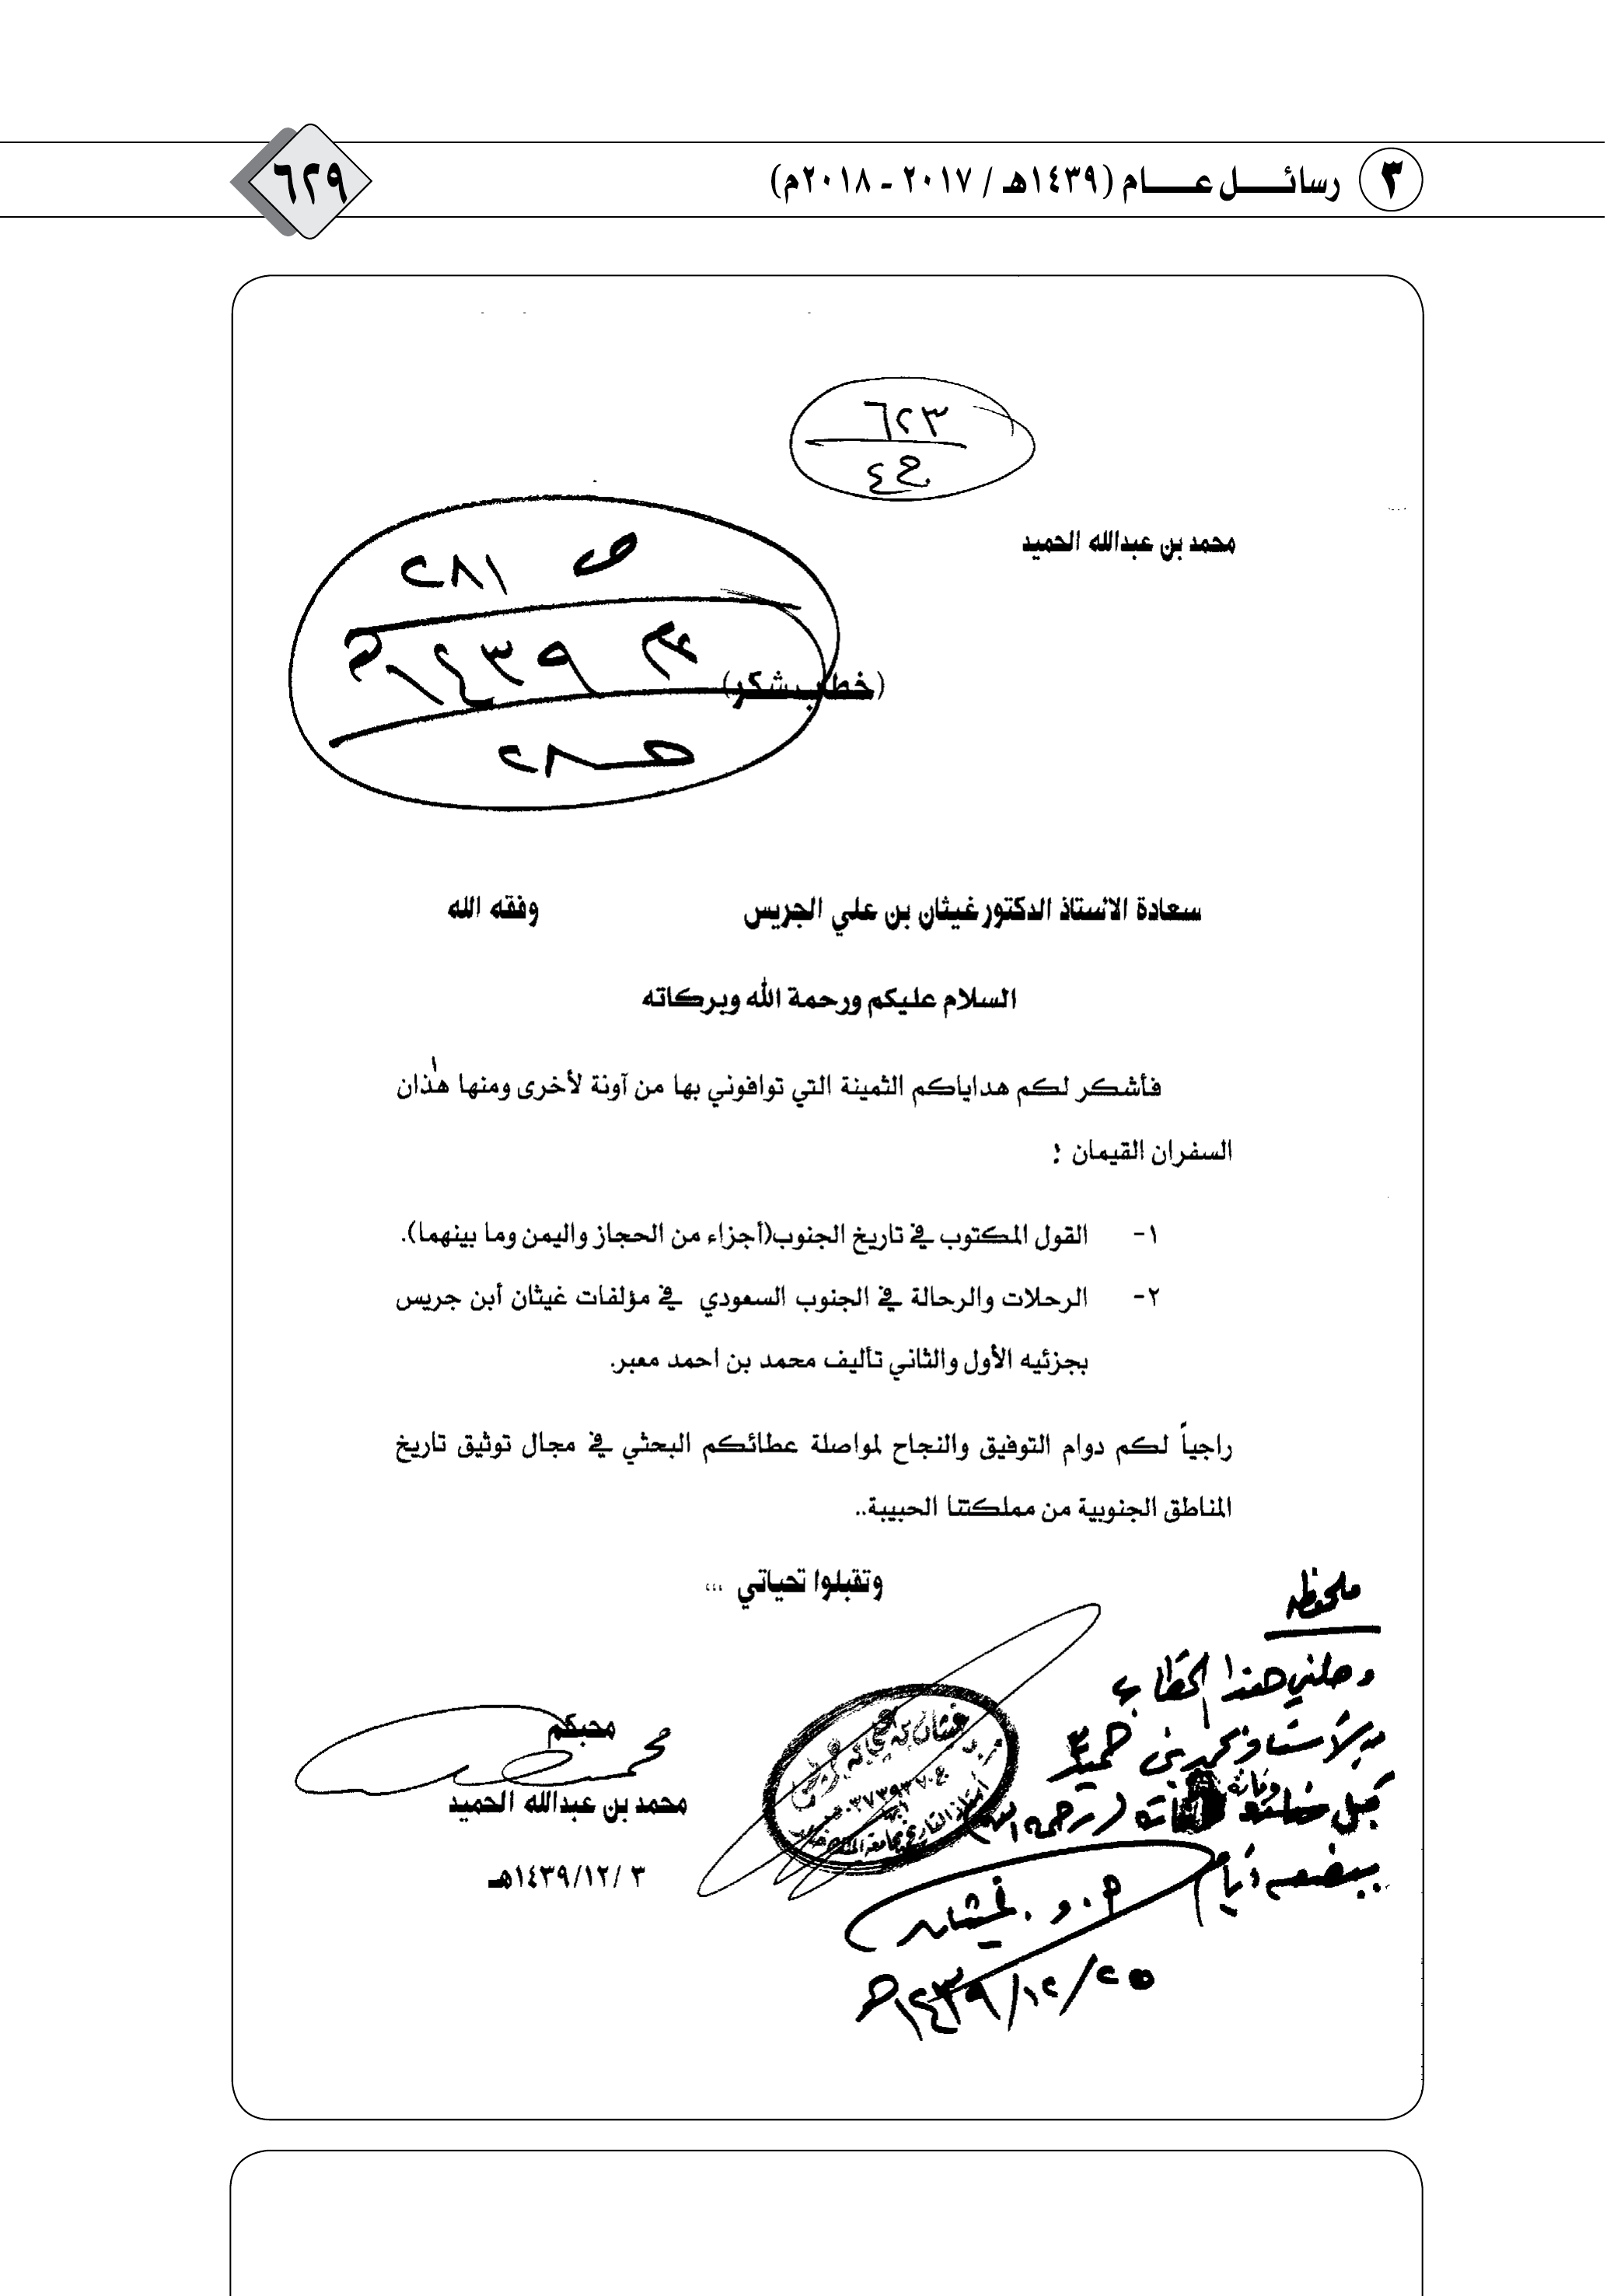 ٣ رسائل عام (١٤٣٩هـ / ٢٠١٧ - ٢٠١٨م)
٦٢٩
٦٢٣
ج٤
محمد بن عبدالله الحميد
ص ٢٨١
عام ١٤٣٩هـ
(خطاب شكر)
سعادة الأستاذ الدكتور غيثان بن علي الجريس وفقه الله
السلام عليكم ورحمة الله وبركاته
فأشكر لكم هداياكم الثمينة التي توافوني بها من آونة لأخرى ومنها هذان
السفران القيمان :
١- القول المكتوب في تاريخ الجنوب(أجزاء من الحجاز واليمن وما بينهما).
٢- الرحلات والرحالة في الجنوب السعودي في مؤلفات غيثان أبن جريس
بجزئيه الأول والثاني تأليف محمد بن احمد معبر.
راجياً لكم دوام التوفيق والنجاح لمواصلة عطائكم البحثي في مجال توثيق تاريخ
المناطق الجنوبية من مملكتنا الحبيبة..
وتقبلوا تحياتي ...
محبكم
محمد بن عبدالله الحميد
٣ /١٤٣٩/١٢هـ
ملحوظه
وصلني هذا الخطاب
من الأستاذ محمد بن حميد
قبل وفاته (رحمه الله)
ببضعة أيام
أ.د. غيثان
٢٥/١٢/١٤٣٩هـ